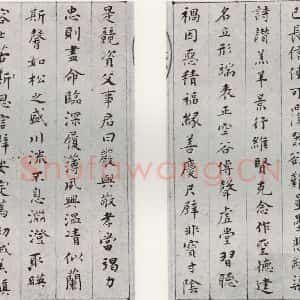 長信使可覆器欲難
詩讚羔羊景行維賢克念作聖德建
名立形端表正空谷傳聲虛堂習聽
禍因惡積福緣善慶尺璧非寶寸陰
是競資父事君曰嚴與敬孝當竭力
忠則盡命臨深履薄夙興溫清似蘭
斯馨如松之盛川流不息淵澄取暎
容止若思言辭安定篤初誠美慎
Shufawang.CN